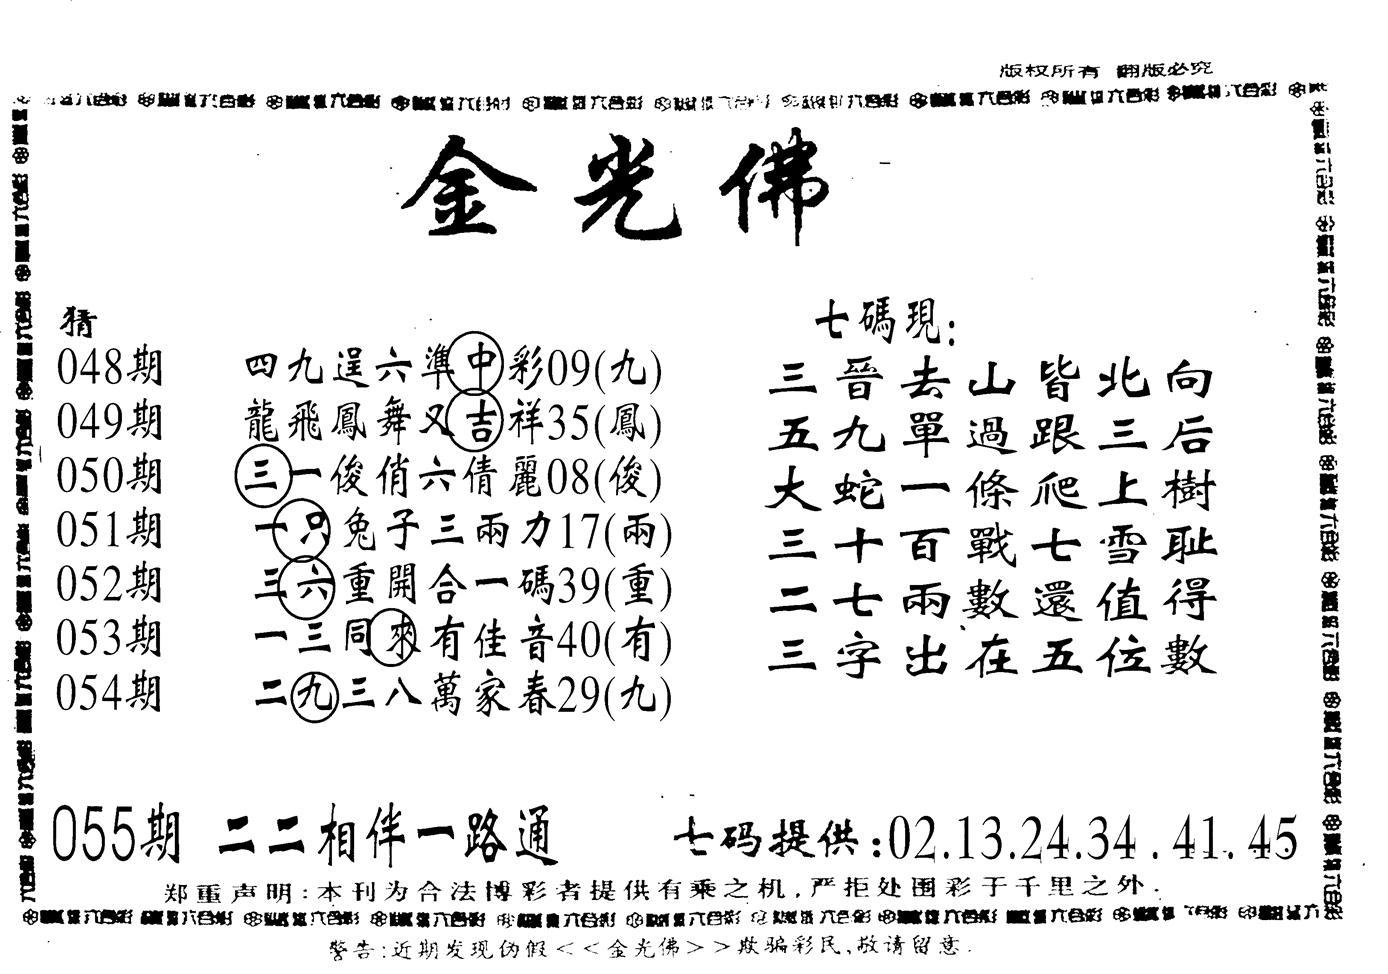 版权所有 翻版必究
金光佛
猜
048期 四九逞六準中彩09(九)
049期 龍飛鳳舞又吉祥35(鳳)
050期 三一俊俏六倩麗08(俊)
051期 一只兔子三兩力17(兩)
052期 三六重開合一碼39(重)
053期 一三同來有佳音40(有)
054期 二九三八萬家春29(九)
七碼現:
三晉去山皆北向
五九單過跟三后
大蛇一條爬上樹
三十百戰七雪耻
二七兩數還值得
三字出在五位數
055期 二二相伴一路通 七码提供:02.13.24.34.41.45
郑重声明:本刊为合法博彩者提供有乘之机,严拒处围彩于千里之外.
警告:近期发现伪假<<金光佛>>欺骗彩民,敬请留意.